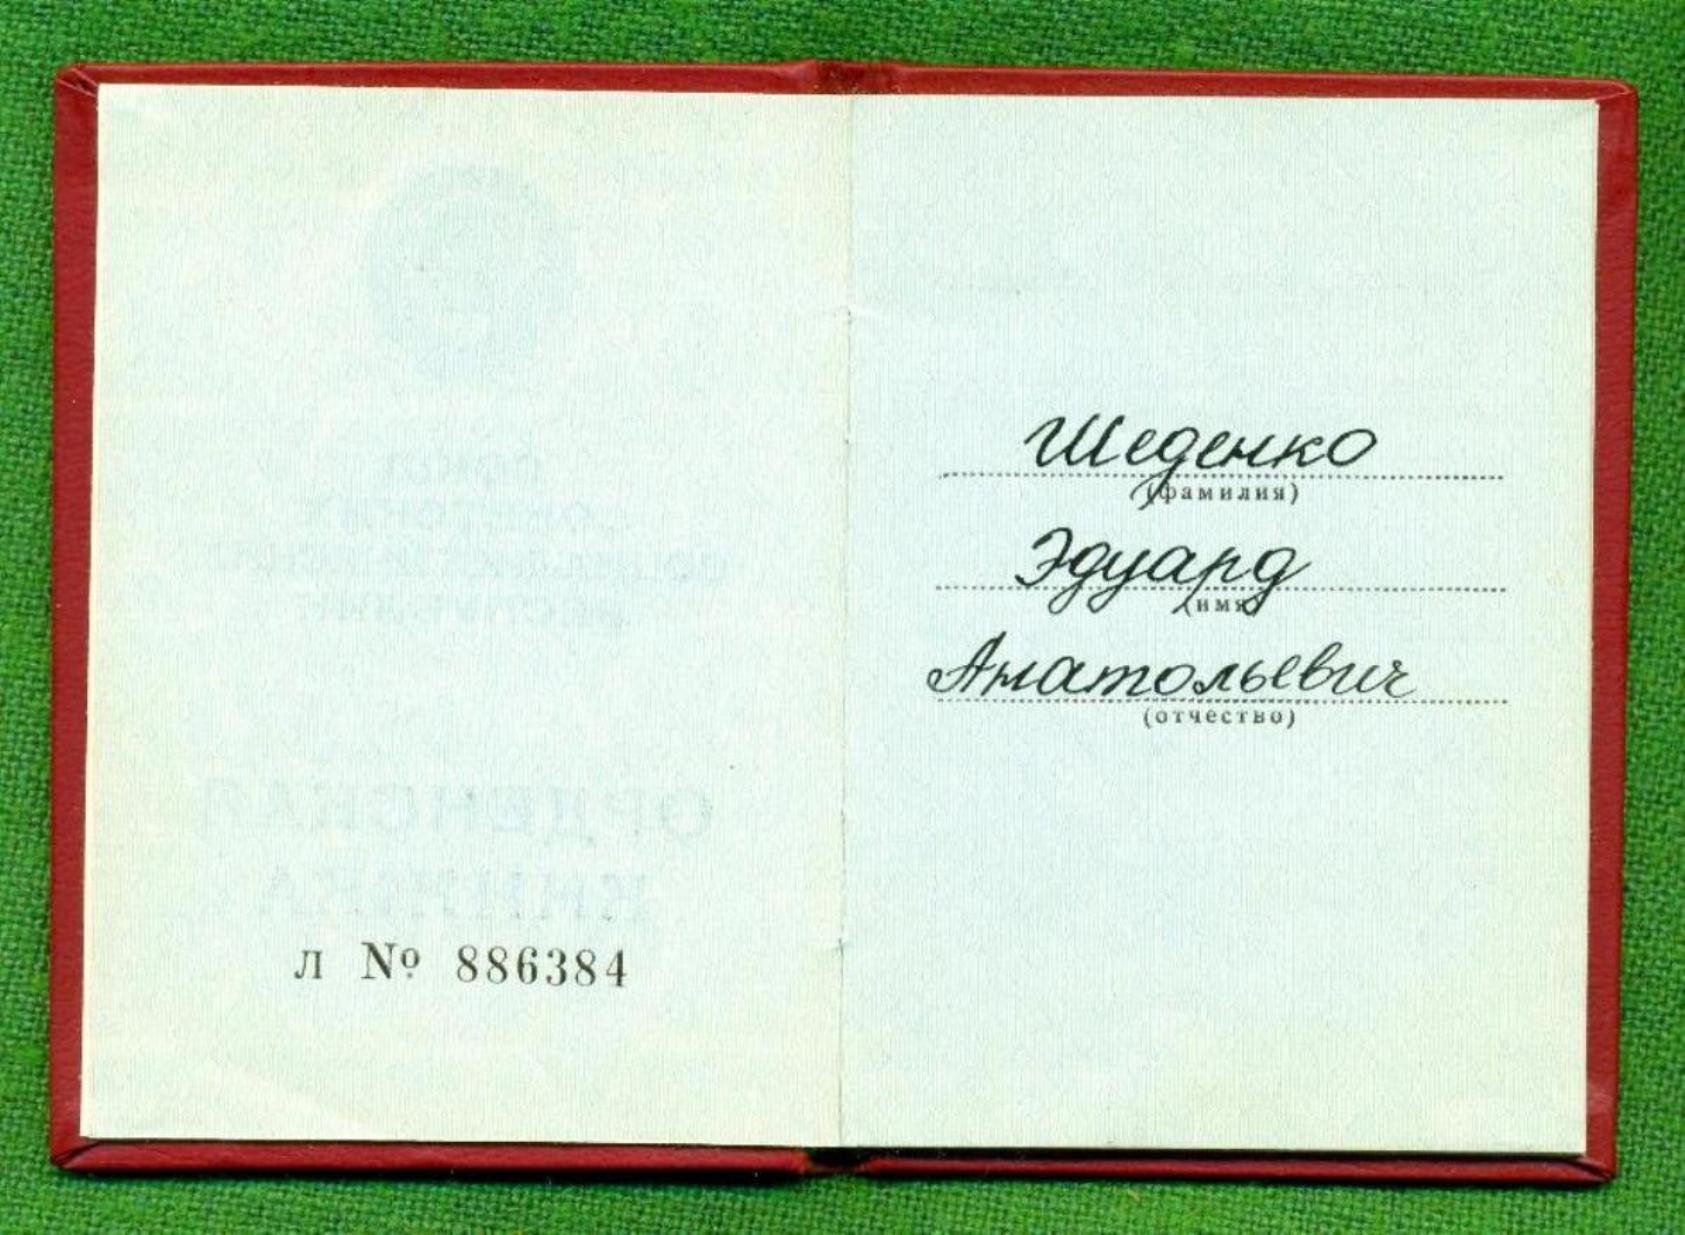 л № 886384
Шеденко
(фамилия)
Эдуард
(имя)
Анатольевич
(отчество)